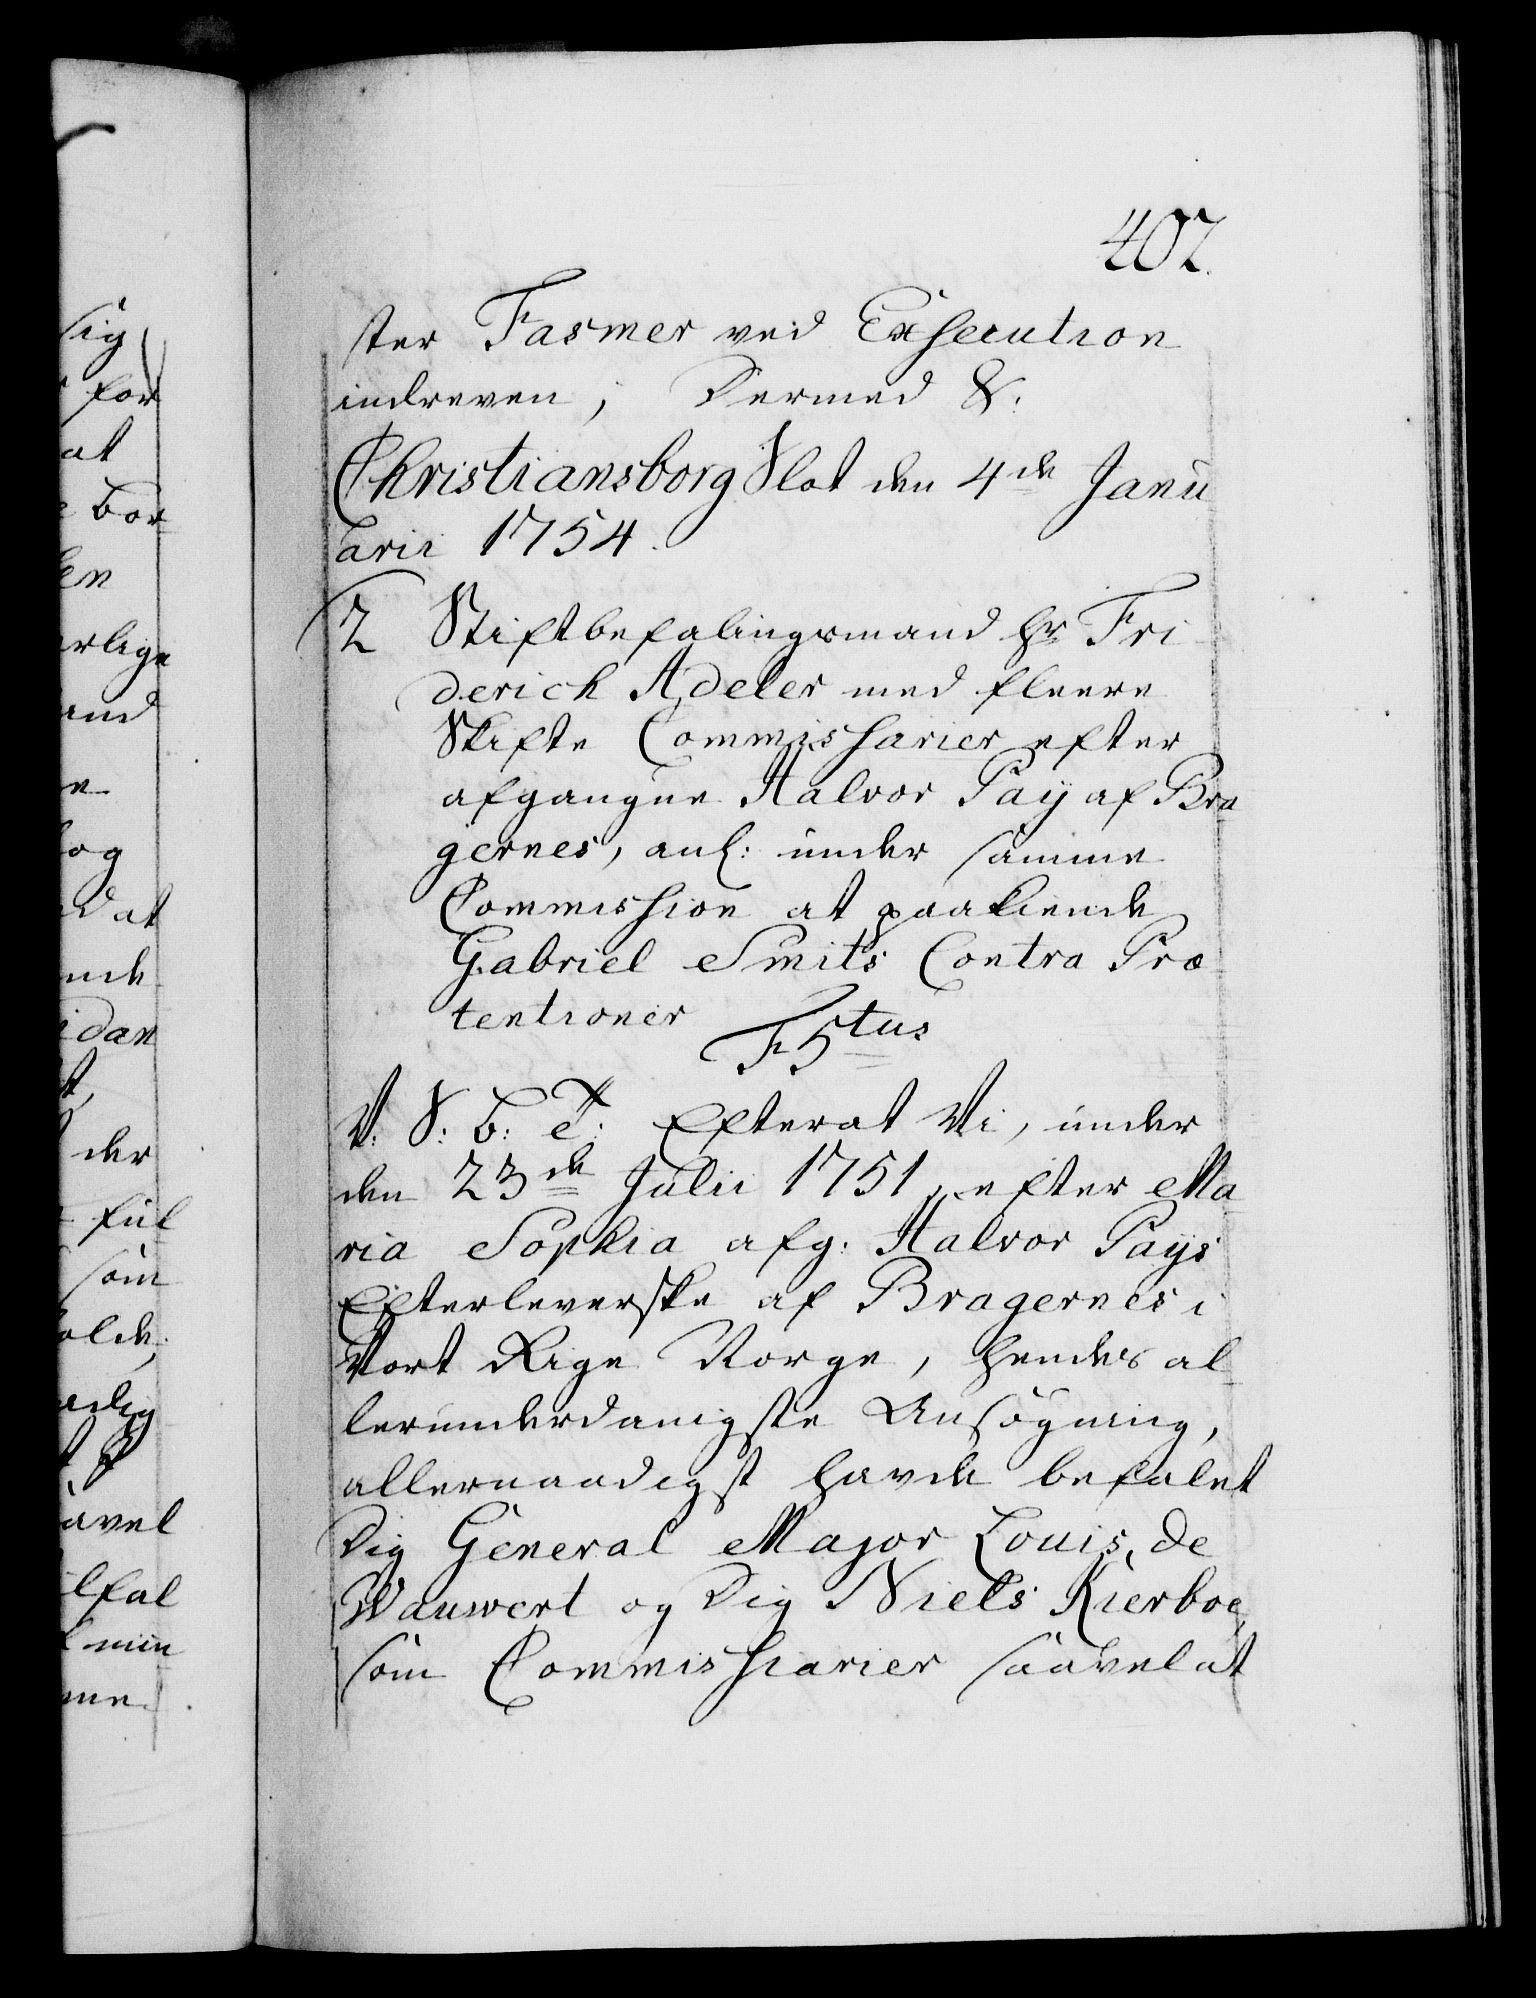 407.
ster Fasmer ved Exsecution
indreven; Dermed &.
Christiansborg Slot den 4de Janu
arii 1754.
2 Stiftbefalingsmand Hr Fri
derich Adeler med fleere
Skifte Commissarier efter
afgangne Halvor Paÿ af Bra
gernes, anl: under samme
Commission at paakiende
Gabriel Smits Contra Præ
tentioner
F 5tus
V. S: b: T: Efterat Vi, under
den 23de Julii 1751, efter Ma
ria Sophia afg: Halvor Paÿs
Efterleverske af Bragernes i
Vort Rige Norge, hendes al
lerunderdanigste Ansøgning,
allernaadigst havde befalet
Dig General Major Louis, de
Wauwert og Dig Niels Kierboe,
som Commissarier saavel at
sig
for
at
bor
den
erlige
and
e
og
dat
ende
idan
t,
der
ful
som
olde,
adig
avel
ilfal
min
me